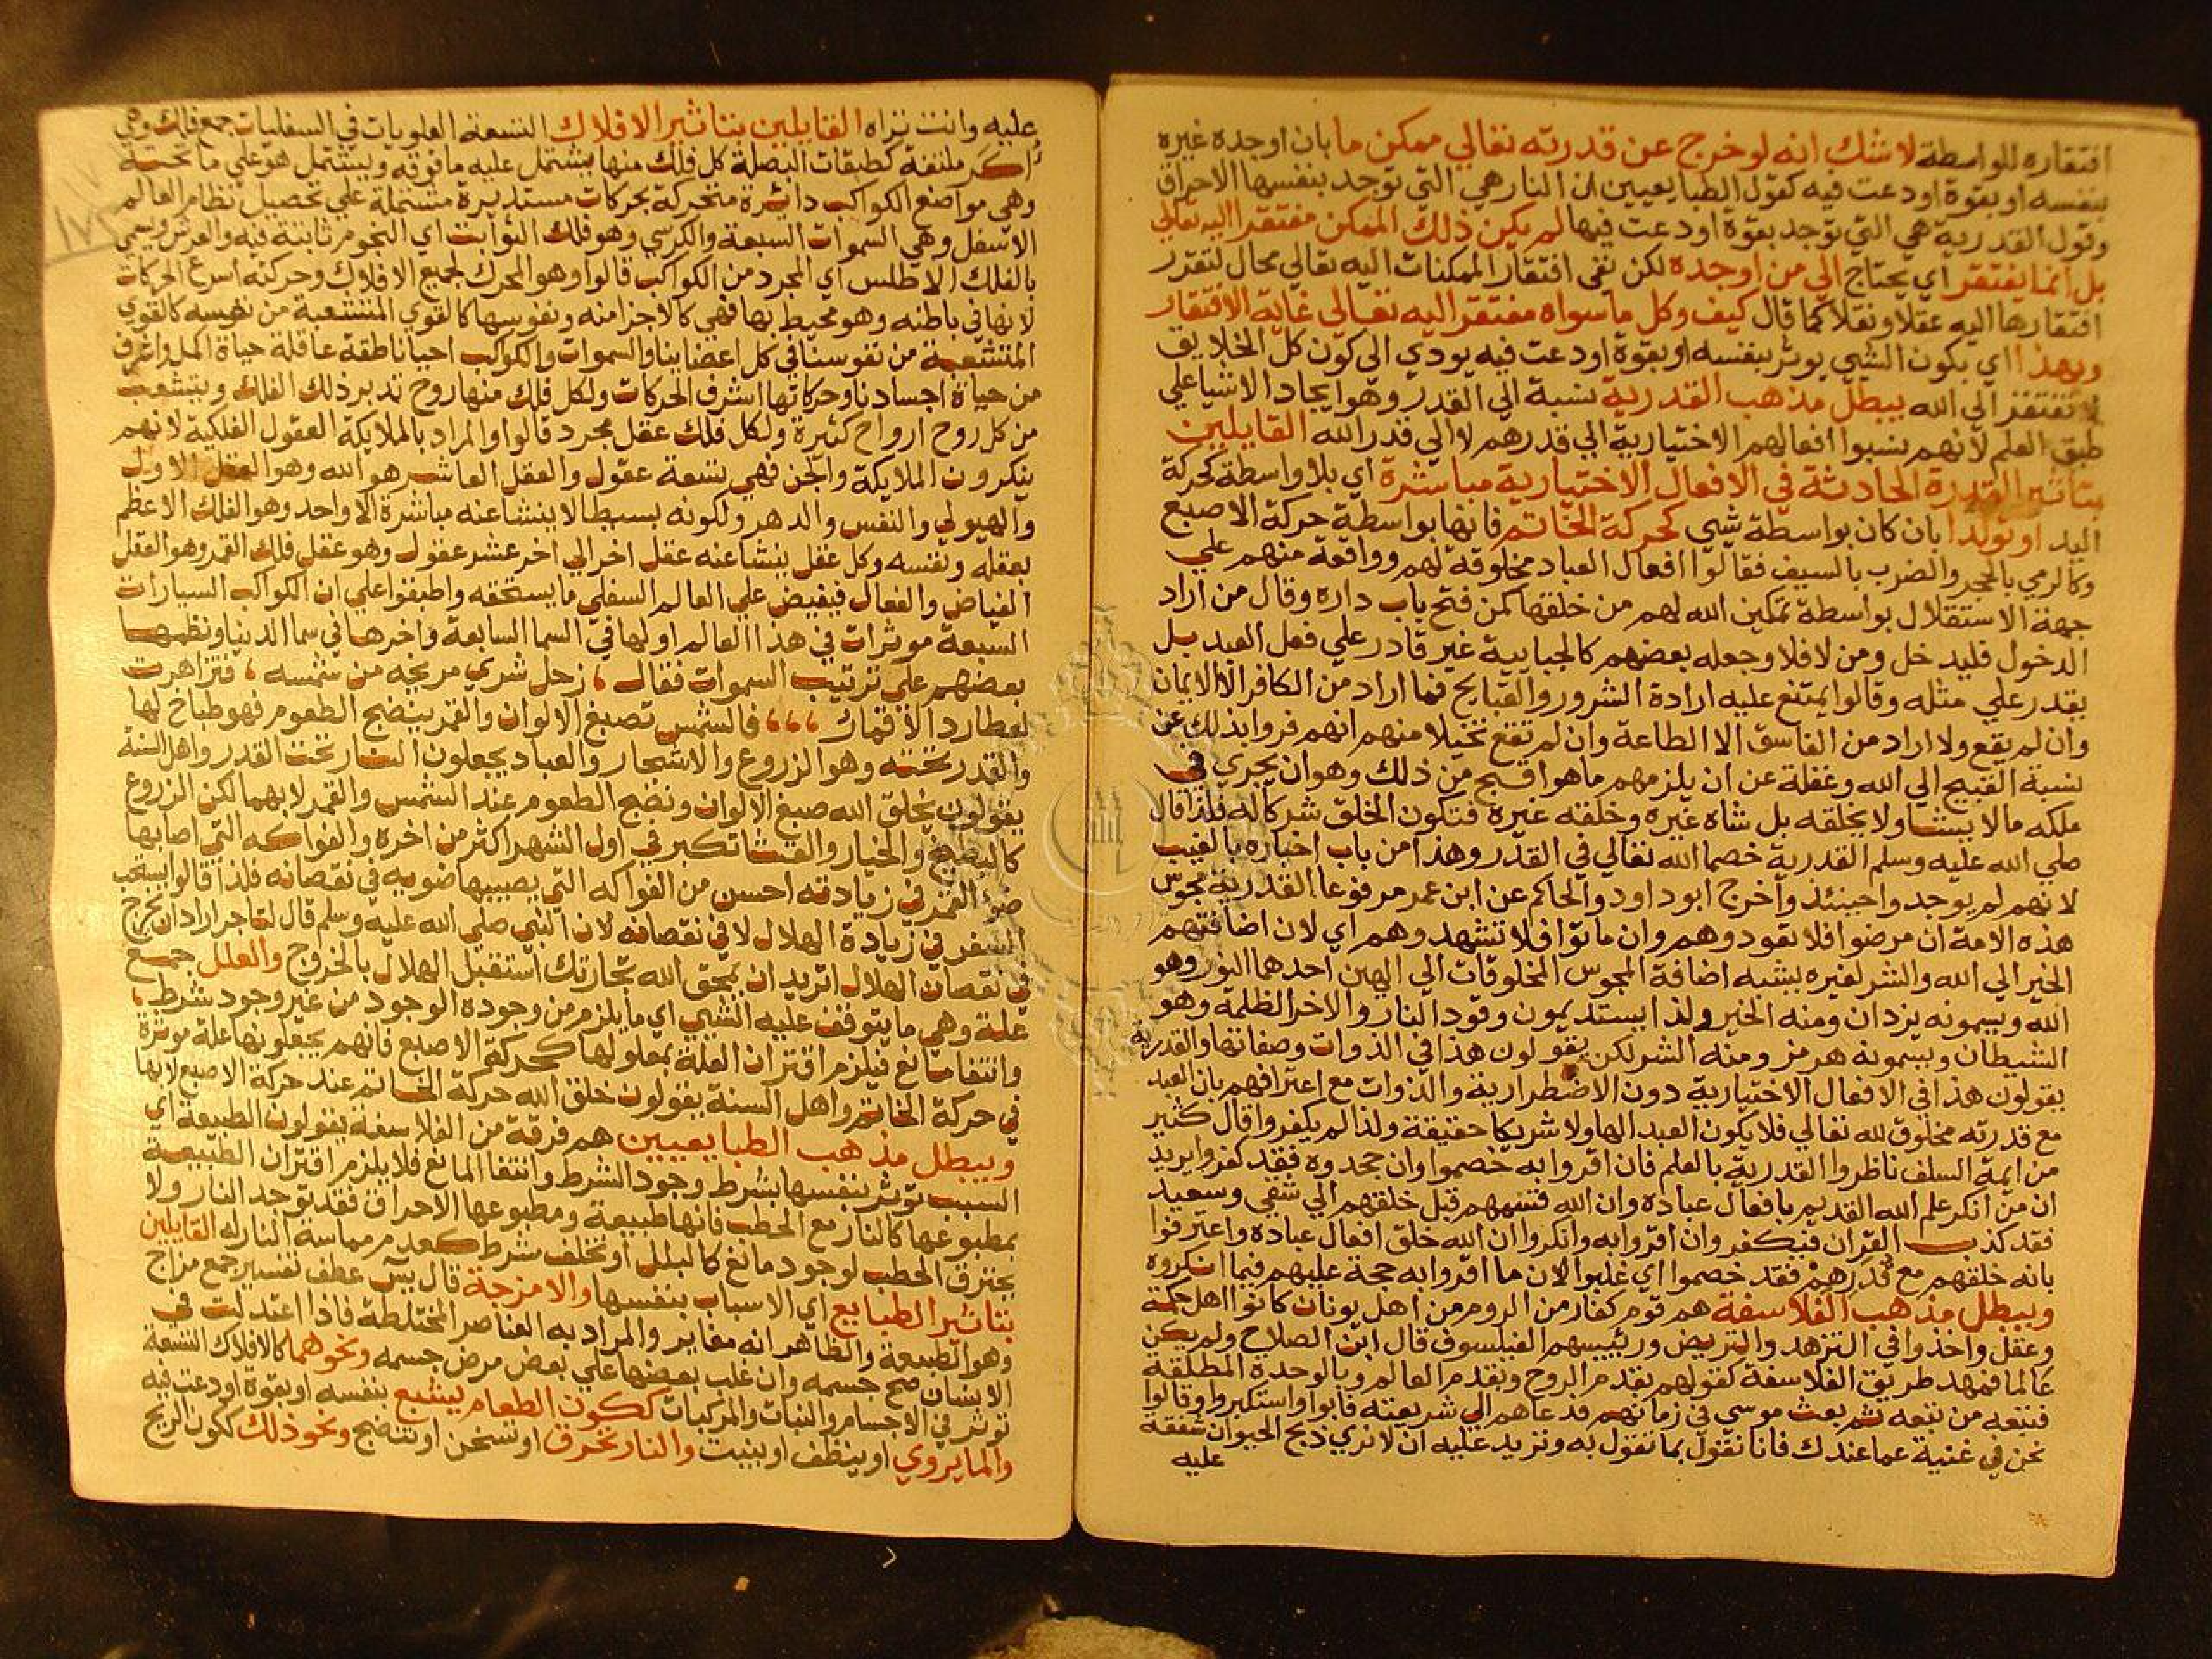 افتقاره للواسطة لا شك انه لو خرج عن قدرته تعالي ممكن ما بان اوجده غيره
بنفسه او بقوة اودعت فيه كقول الطبايعيين ان النار هي التي توجد بنفسها الاحراق
وقول القدرية هي التي توجد بقوة اودعت فيها لم يكن ذلك الممكن مفتقرا اليه تعالي
بل انما يفتقر اي يحتاج الي من اوجده لكن نفي افتقار الممكنات اليه تعالي محال لتقرر
افتقارها اليه عقلا ونقلا كما قال كيف وكل ما سواه مفتقر اليه تعالي غاية الافتقار
وبهذا اي بكون الشي يوثر بنفسه او بقوة اودعت فيه يودي الي كون كل الخلايق
لا تفتقر الي الله يبطل مذهب القدرية نسبة الي القدر وهو ايجاد الاشيا علي
طبق العلم لانهم نسبوا افعالهم الاختيارية الي قدرهم لا الي قدر الله القايلين
بتاثير القدرة الحادثة في الافعال الاختيارية مباشرة اي بلا واسطة كحركة
اليد او تولدا بان كان بواسطة شي كحركة الخاتم فانها بواسطة حركة الاصبع
وكالرمي بالحجر والضرب بالسيف فقالوا افعال العباد مخلوقة لهم وواقعة منهم علي
جهة الاستقلال بواسطة تمكين الله لهم من خلقها كمن فتح باب داره وقال من اراد
الدخول فليدخل ومن لا فلا وجعله بعضهم كالجبايية غير قادر علي فعل العبد بل
يقدر علي مثله وقالوا يمتنع عليه ارادة الشرور والقبايح فما اراد من الكافر الا الايمان
وان لم يقع ولا اراد من الفاسق الا الطاعة وان لم تقع تخيلا منهم انهم فروا بذلك عن
نسبة القبيح الي الله وغفلة عن ان يلزمهم ما هو اقبح من ذلك وهو ان يجري في
ملكه ما لا يشا ولا يخلقه بل شاه غيره وخلقه غيره فتكون الخلق شركا له فلذا قال
صلي الله عليه وسلم القدرية خصما الله تعالي في القدر وهذا من باب اخباره بالغيب
لانهم لم يوجدوا حينئذ واخرج ابو داود والحاكم عن ابن عمر مرفوعا القدرية مجوس
هذه الامة ان مرضوا فلا تعودوهم وان ماتوا فلا تشهدوهم اي لان اضافتهم
الخير الي الله والشر لغيره يشبه اضافة المجوس المخلوقات الي الهين احدهما النور وهو
الله ويسمونه يزدان ومنه الخير ولذا يستديمون وقود النار والاخر الظلمة وهو
الشيطان ويسمونه هرمز ومنه الشر لكن يقولون هذا في الذوات وصفاتها والقدرية
يقولون هذا في الافعال الاختيارية دون الاضطرارية والذوات مع اعترافهم بان العبد
مع قدرته مخلوق لله تعالي فلا يكون العبد الها ولا شريكا حقيقة ولذا لم يكفروا قال كثير
من ايمة السلف ناظروا القدرية بالعلم فان اقروا به خصموا وان جحدوه فقد كفروا يريد
ان من انكر علم الله القديم بافعال عباده وان الله قسمهم قبل خلقهم الي شقي وسعيد
فقد كذب القران فيكفر وان اقروا به وانكروا ان الله خلق افعال عباده واعترفوا
بانه خلقهم مع قدرهم فقد خصموا اي غلبوا لان ما اقروا به حجة عليهم فيما انكروه
ويبطل مذهب الفلاسفة هم قوم كفار من الروم من اهل يونان كانوا اهل حكمة
وعقل واخذوا في التزهد والتريض ورييسهم الفيلسوف قال ابن الصلاح ولم يكن
عالما فمهد طريق الفلاسفة كقولهم بقدم الروح وبقدم العالم وبالوحدة المطلقة
فتبعه من تبعه ثم بعث موسي في زمانهم فدعاهم الي شريعته فابوا واستكبروا وقالوا
نحن في غنية عما عندك فانا نقول بما تقول به ونزيد عليه ان لا نري ذبح الحيوان شفقة
عليه
عليه وانت تراه القايلين بتاثير الافلاك التسعة العلويات في السفليات جمع فلك وهي
اكر ملتفة كطبقات البصلة كل فلك منها يشتمل عليه ما فوقه ويشتمل هو علي ما تحته
وهي مواضع الكواكب دائرة متحركة بحركات مستديرة مشتملة علي تحصيل نظام العالم
الاسفل وهي السموات السبعة والكرسي وهو فلك الثوابت اي النجوم ثابتة فيه والعرش ويسمي
بالفلك الاطلس اي المجرد من الكواكب قالوا وهو المحرك لجميع الافلاك وحركته اسرع الحركات
لانها في باطنه وهو محيط بها فهي كالاجزا منه ونفوسها كالقوي المتشعبة من نفسه كالقوي
المتشعبة من نفوسنا في كل اعضاينا والسموات والكواكب احيا ناطقة عاقلة حياة اكمل واغرف
من حياة اجسادنا وحركاتها اشرف الحركات ولكل فلك منها روح تدبر ذلك الفلك ويتشعب
من كل روح ارواح كثيرة ولكل فلك عقل مجرد قالوا والمراد بالملايكة العقول الفلكية لانهم
ينكرون الملايكة والجن فهي تسعة عقول والعقل العاشر هو الله وهو العقل الاول
والهيولي والنفس والدهر ولكونه بسيطا لا ينشا عنه مباشرة الا واحد وهو الفلك الاعظم
بعقله ونفسه وكل عقل ينشا عنه عقل اخر الي اخر عشر عقول وهو عقل فلك القمر وهو العقل
الفياض والفعال فيفيض علي العالم السفلي ما يستحقه واطبقوا علي ان الكواكب السيارات
السبعة موثرات في هذا العالم اولها في السما السابعة واخرها في سما الدنيا ونظمها
بعضهم علي ترتيب السموات فقال ، زحل شري مريخه من شمسه ، فتزاهرت
لعطارد الاقمار ،،، فالشمس تصبغ الالوان والقمر ينضج الطعوم فهو طباخ لها
والقدر تحته وهو الزروع والاشجار والعباد يجعلون النار تحت القدر واهل السنة
يقولون يخلق الله صبغ الالوان ونضج الطعوم عند الشمس والقمر لا بهما لكن الزروع
كالبطيخ والخيار والقثا تكبر في اول الشهر اكثر من اخره والفواكه التي اصابها
ضوء القمر في زيادته احسن من الفواكه التي يصيبها ضويه في نقصانه فلذا قالوا يستحب
السفر في زيادة الهلال لا في نقصانه لان النبي صلي الله عليه وسلم قال لتاجر اراد ان يخرج
في نقصان الهلال اتريد ان يمحق الله تجارتك استقبل الهلال بالخروج والعلل جمع
علة وهي ما يتوقف عليه الشي اي ما يلزم من وجوده الوجود من غير وجود شرط ،
وانتفا مانع فيلزم اقتران العلة بمعلولها كحركة الاصبع فانهم يجعلونها علة موثرة
في حركة الخاتم واهل السنة يقولون خلق الله حركة الخاتم عند حركة الاصبع لا بها
ويبطل مذهب الطبايعيين هم فرقة من الفلاسفة يقولون الطبيعة اي
السبب توثر بنفسها بشرط وجود الشرط وانتفا المانع فلا يلزم اقتران الطبيعة
بمطبوعها كالنار مع الحطب فانها طبيعة ومطبوعها الاحراق فقد توجد النار ولا
يحترق الحطب لوجود مانع كالبلل او تخلف شرط كعدم مماسة النار له القايلين
بتاثير الطبايع اي الاسباب بنفسها والامزجة قال يس عطف تفسير جمع مزاج
وهو الطبيعة والظاهر انه مغاير والمراد به العناصر المختلطة فاذا اعتدلت في
الانسان صح جسمه وان غلب بعضها علي بعض مرض جسمه ونحوهما كالافلاك التسعة
توثر في الاجسام والنبات والمركبات ككون الطعام يشبع بنفسه او بقوة اودعت فيه
والما يروي او ينظف او ينبت والنار تحرق او تسخن او تنضج ونحو ذلك ككون الريح